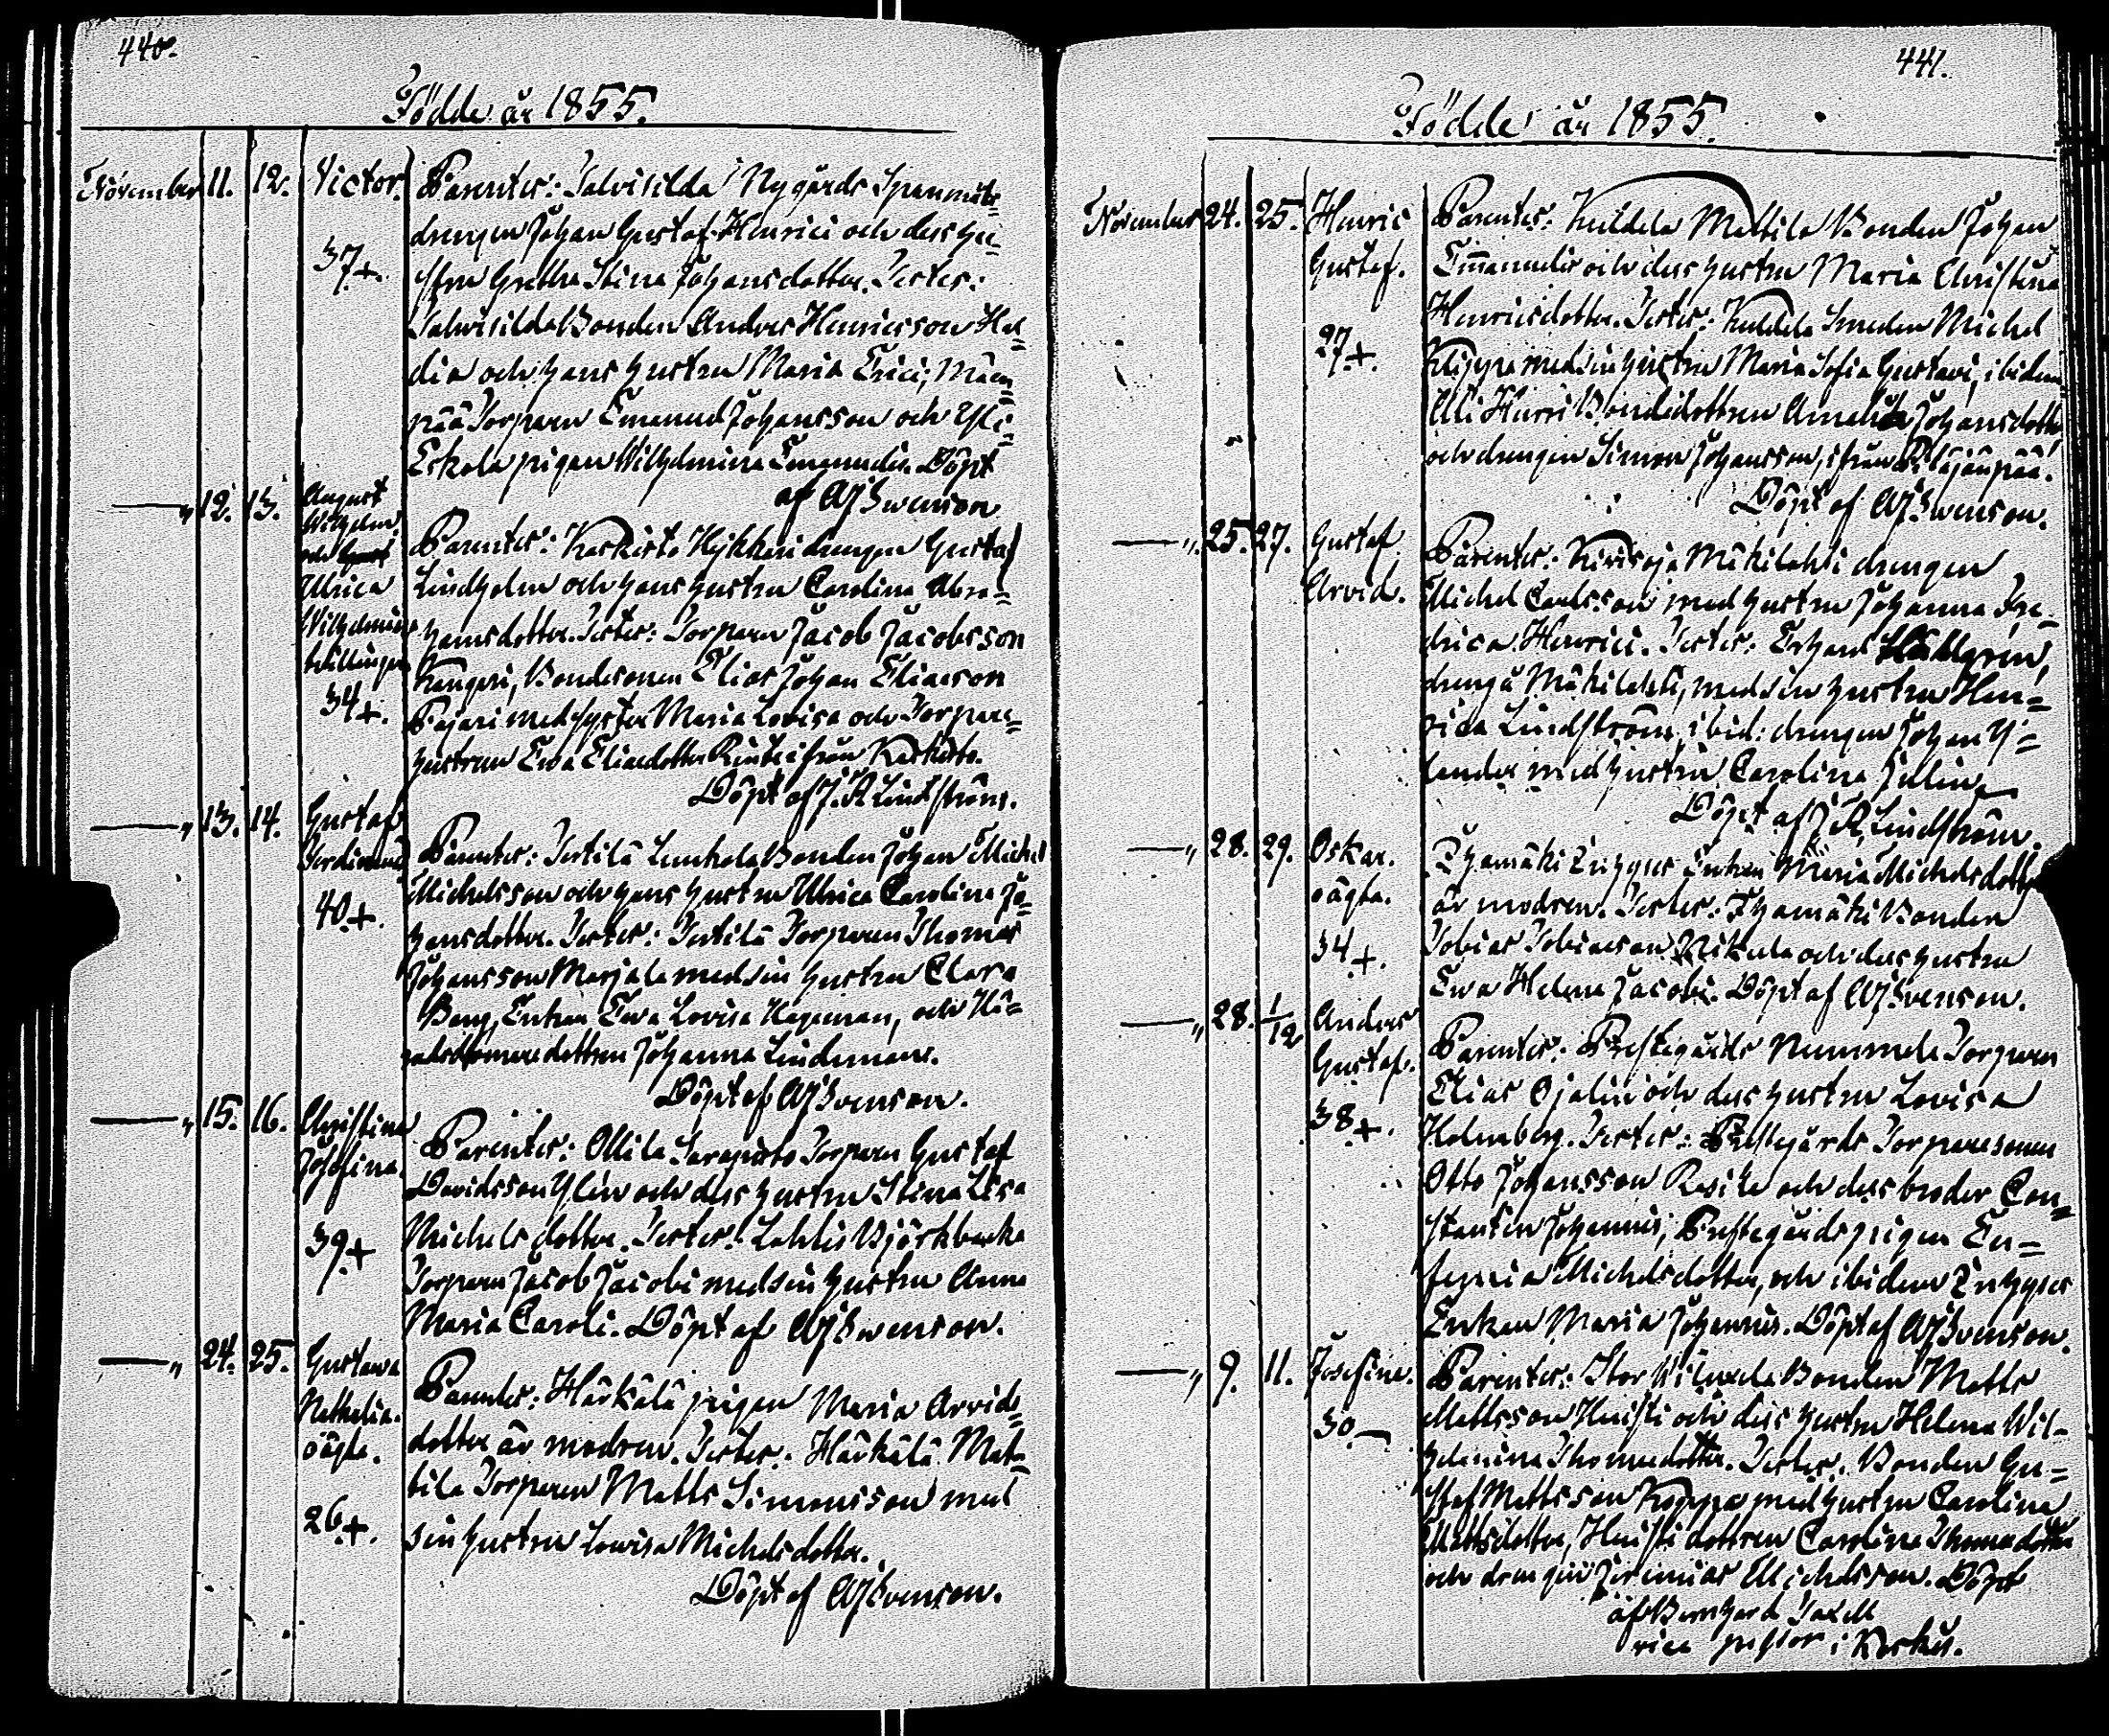 440.
Födde år 1855.
November 11. 12. Victor. Parenter: Salvisilda Nygårds Spanmåls-
drengen Johan Gustaf Henrici och dess hu-
37+. stru Gretha Stina Johansdotter. Testes:
Salvisilda Bonden Anders Henricsson Hel-
dia och hans hustru Maria Erici; Mäen-
pää Torparen Emanuel Johansson och Yli-
Eskola pigan Wilhelmina Emanuelis. Döpt
af AJSwenson
—„ 12. 13. August
Wilhelm
och
Ulrica
Wilhelmina
tvillingar
34+.
Parenter: Karkisto Hykkeri drengen Gustaf
Lindholm och hans hustru Carolina Abra-
hamsdotter. Testes: Torparen Jacob Jacobsson
Kangeri, Bondesonen Elias Johan Eliasson
Pajari med syster Maria Lovisa och Torpare-
hustrun Ewa Eliedotter från Karkisto.
Döpt af J. A Lindström.
—„ 13. 14. Gustaf
Ferdinand
40+.
Parenter: Tertilä Lenkola Bonden Johan Michel
Michelsson och hans hustru Ulrica Carolina Jo-
hansdotter. Testes: Tertilä Torparen Thomas
Johansson Marjala med sin hustru Clara
Berg, Enkan Ewa Lovisa Hageman, och Hä-
radsdomaredottren Johanna Lindeman.
Döpt af AJSvenson.
—„ 15. 16. Christina
Josefina.
39+
Parenter: Ollila Torparen Gustaf
Davidsson Ylén och dess hustru Stina Lisa
Michelsdotter. Testes: Lahlis Björkbacka
Torparen Jacob Jacobi med sin hustru Anna
Maria Caroli. Döpt af AJSwenson.
—„ 24. 25. Gustava
Nathalia.
oägta.
26+.
Parenter: Härkälä pigan Maria Arvids-
dotter är modren. Testes: Härkälä Mat-
tila Torparen Matts Simonsson med
sin hustru Lowisa Michelsdotter.
Döpt af AJSvenson.
441.
Födde år 1855.
November 24. 25. Henric
Gustaf.
27+.
Parenter: Kuldela Mattila Bonden Johan
Emanuelis och dess hustru Maria Christina
Henricsdotter. Testes: Kuldela Smeden Michel
med sin hustru Maria Sofia Gustavi, ibidem
Ali Hurri Bondedottren Amalia Johansdotter
och drengen Simon Johansson, ifrån
Döpt af AJSwenson.
—„ 25. 27. Gustaf
Arvid.
Parenter: Kirisoja Mäkilähti drengen
Michel Carlsson med hustru Johanna Fre-
drica Henrici. Testes: Erhard Hällgren,
dreng å Mäkilähti, med sin hustru Hen-
rica Lindström, ibid: drengen Johan Y-
lander med hustru Carolina Jullin.
Döpt af J A Lindström.
—„ 28. 29. Oskar.
oägta.
34+.
Ihamäki Enkan Maria Michelsdotter
är modren. Testes: Ihamäki Bonden
Tobias Tobiasson Nikula och dess hustru
Ewa Helena Jacobi. Döpt af AJSvenson.
—„ 28. 1/12 Anders
Gustaf.
38+.
Parenter: Prestegårds Nummela Torparen
Elias Ojalin och dess hustru Lovisa
Holmberg. Testes: Prestegårds Torparesonen
Otto Johansson Resike och dess broder Con-
stantin Johannis, Prestegårdspigan Eu-
femia Michelsdotter, och ibidem
Enkan Maria Johannis. Döpt af AJSvenson.
—„ 9. 11. Josefina.
30.—
Parenter: Stor Bonden Matts
Mattsson Heusti och dess hustru Helena Wil-
helmina Thomasdotter. Testes: Bonden Gu-
staf Mattsson Koppa med hustru Carolina
Mattsdotter, Heusti dottren Carolina Thomasdotter
och drengen Jeremias Michelsson. Döpt
af Bernhard Taxell
vice pastor i Karkku.